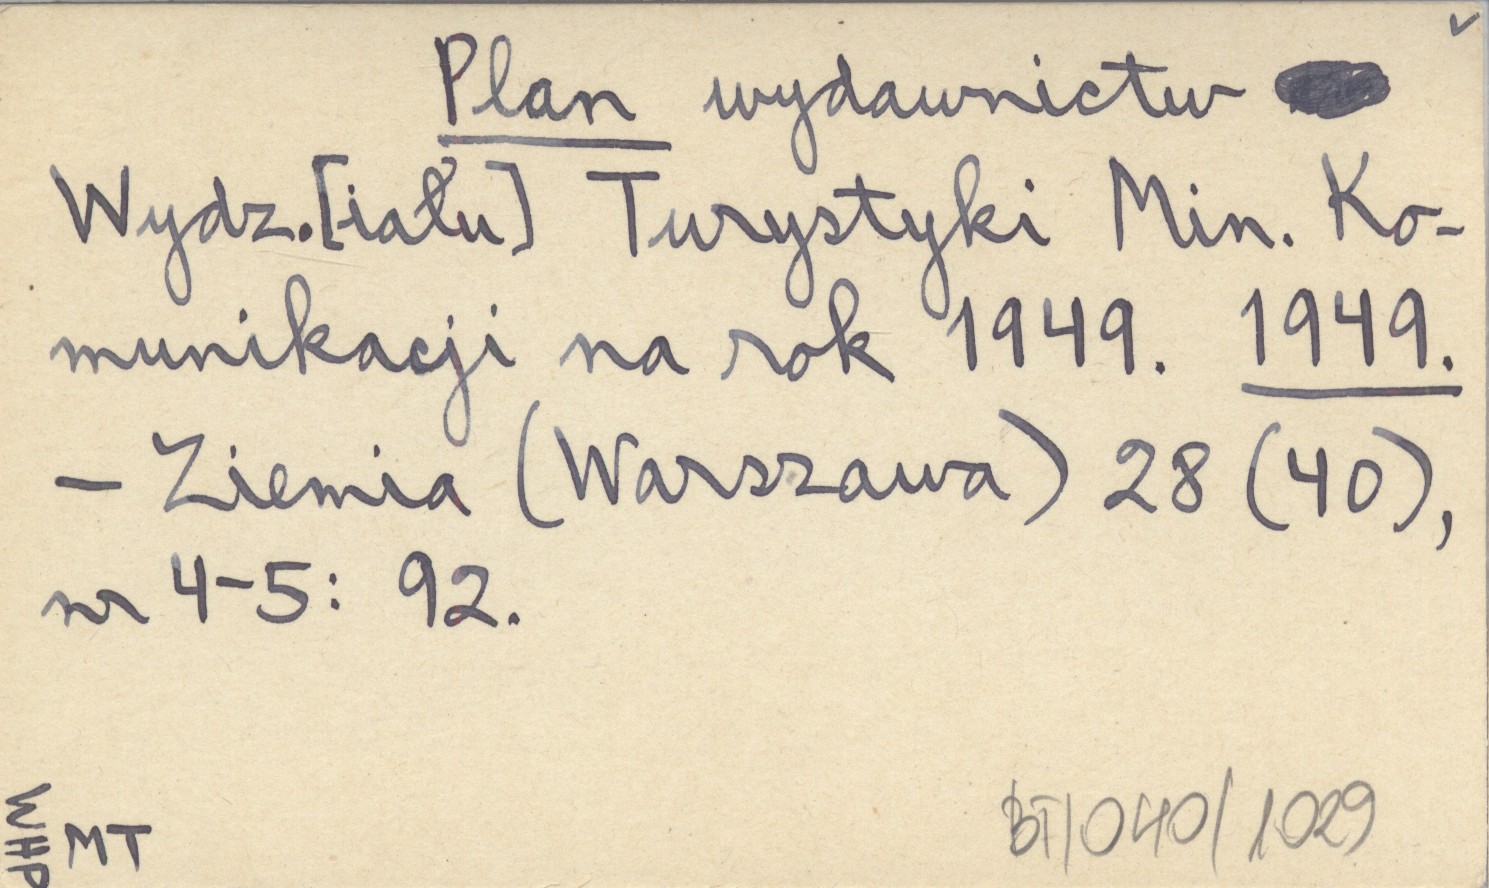 Plan wydawnictw
Wydz.[iału] Turystyki Min. Ko-
munikacji na rok 1949. 1949.
- Ziemia (Warszawa) 28 (40),
nr 4-5: 92.
WHP
MT
BT/040/1029